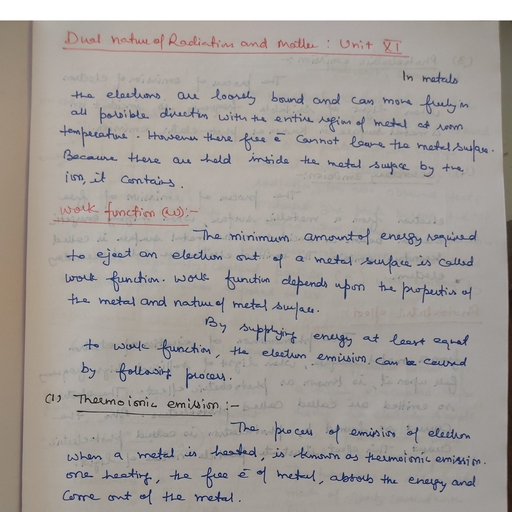 Dual nature of Radiation and matter : Unit XI
In metals
the electrons are loosely bound and can move freely in
all possible direction with the entire region of metal at room
temperature. However there free ē cannot leave the metal surface.
Because there are held inside the metal surface by the
ion, it contains.
work function (W):-
The minimum amount of energy required
to eject an electron out of a metal surface is called
work function. Work function depends upon the properties of
the metal and nature of metal surface.
By supplying energy at least equal
to work function, the electron emission can be caused
by following process.
(1) Thermoionic emission :-
The process of emission of electron
when a metal is heated, is known as thermoionic emission.
one heating, the free ē of metal, absorb the energy and
come out of the metal.